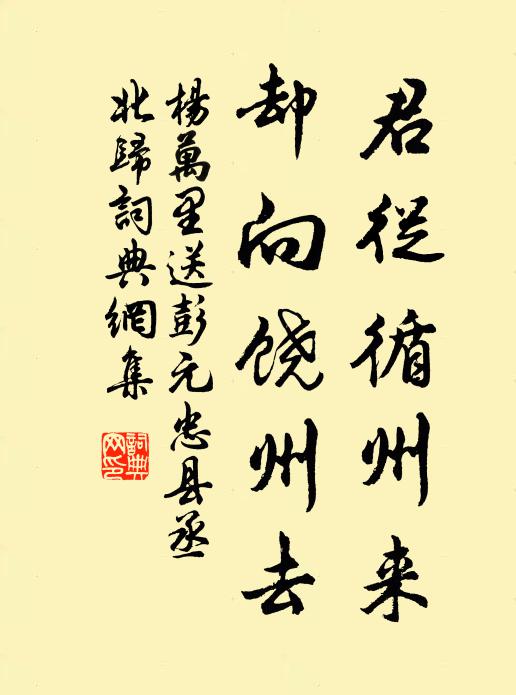 君從循州来
却向饶州去
楊萬里送彭元忠县丞
北歸詞典網集
詞典
网印